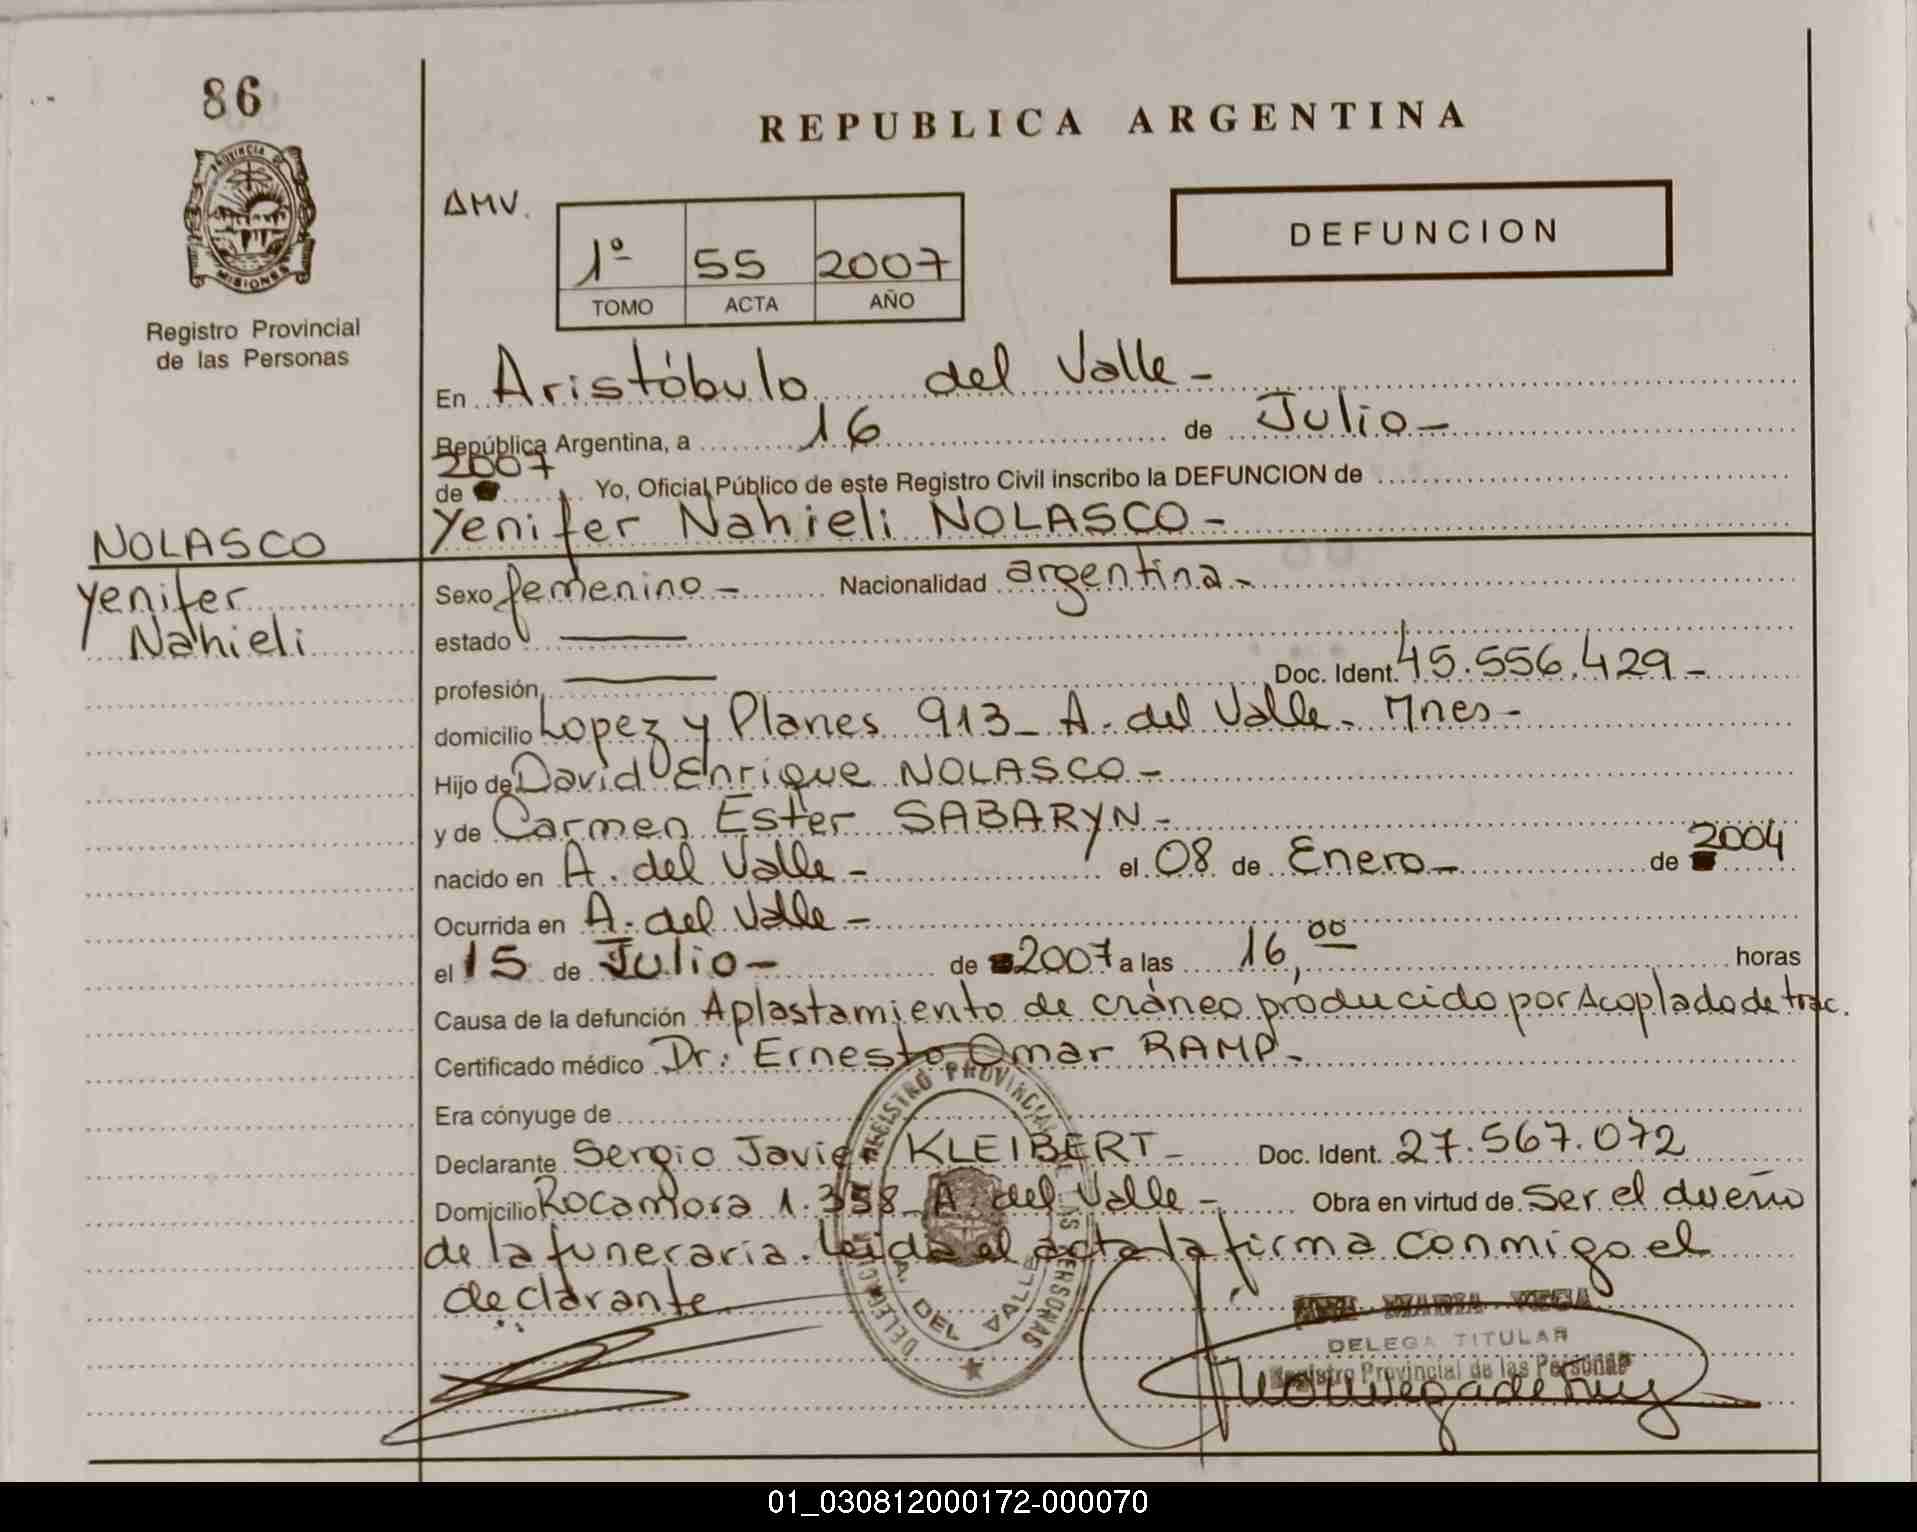 86
REPUBLICA ARGENTINA
PROVINCIA DE
MISIONES
Registro Provincial
de las Personas
AMV.
1º 55 2007
TOMO ACTA AÑO
DEFUNCION
En Aristóbulo del Valle -
República Argentina, a 16 de Julio -
2007
de Yo, Oficial Público de este Registro Civil inscribo la DEFUNCION de
NOLASCO Yenifer Nahieli NOLASCO -
Yenifer
Nahieli
Sexo femenino - Nacionalidad argentina -
estado
profesión Doc. Ident. 45.556.429 -
domicilio Lopez y Planes 913 - A. del Valle - Mnes -
Hijo de David Enrique NOLASCO -
y de Carmen Ester SABARYN -
nacido en A. del Valle - el 08 de Enero - de 2004
Ocurrida en A. del Valle -
el 15 de Julio - de 2007 a las 16,00 horas
Causa de la defunción Aplastamiento de cráneo producido por Acoplado de trac.
Certificado médico Dr. Ernesto Omar RAMP -
Era cónyuge de
Declarante Sergio Javier KLEIBERT - Doc. Ident. 27.567.072
Domicilio Rocamora 1.358 - A. del Valle - Obra en virtud de Ser el dueño
de la funeraria. Leida el acta la firma conmigo el
declarante
REGISTRO PROVINCIAL DE LAS PERSONAS
DELEGACION
A. DEL VALLE
ANA MARIA VEGA
DELEGA TITULAR
Registro Provincial de las Personas
01_030812000172-000070